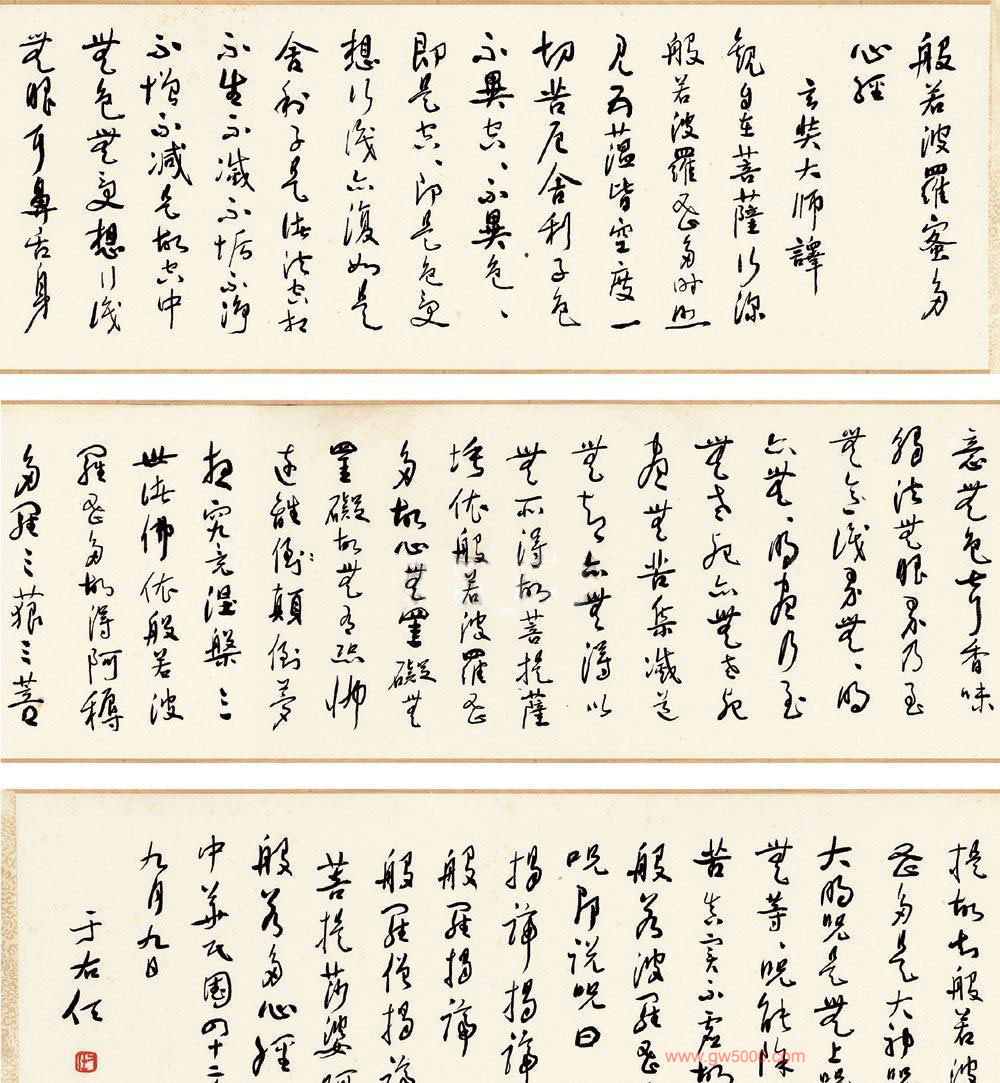 般若波羅蜜多
心經
玄奘大師譯
觀自在菩薩行深
般若波羅蜜多時照
見五蘊皆空度一
切苦厄舍利子色
不異空、不異色、
即是空、即是色受
想行識亦復如是
舍利子是諸法空相
不生不滅不垢不淨
不增不減是故空中
無色無受想行識
無眼耳鼻舌身
意無色聲香味
觸法無眼界乃至
無意識界無、明
亦無、明盡乃至
無老死亦無老死
盡無苦集滅道
無智亦無得以
無所得故菩提薩
埵依般若波羅蜜
多故心無罣礙無
罣礙故無有恐怖
遠離倒顛倒夢
想究竟涅槃三
世諸佛依般若波
羅蜜多故得阿耨
多羅三藐三菩
提故知般若波
蜜多是大神咒
大明咒是無上咒
無等、咒能除
苦真實不虛故
般若波羅蜜
咒即說咒曰
揭諦揭諦
般羅揭諦
般羅僧揭諦
菩提莎婆訶
般若多心經
中華民國四十二
九月九日
于右任
www.gw5000.com